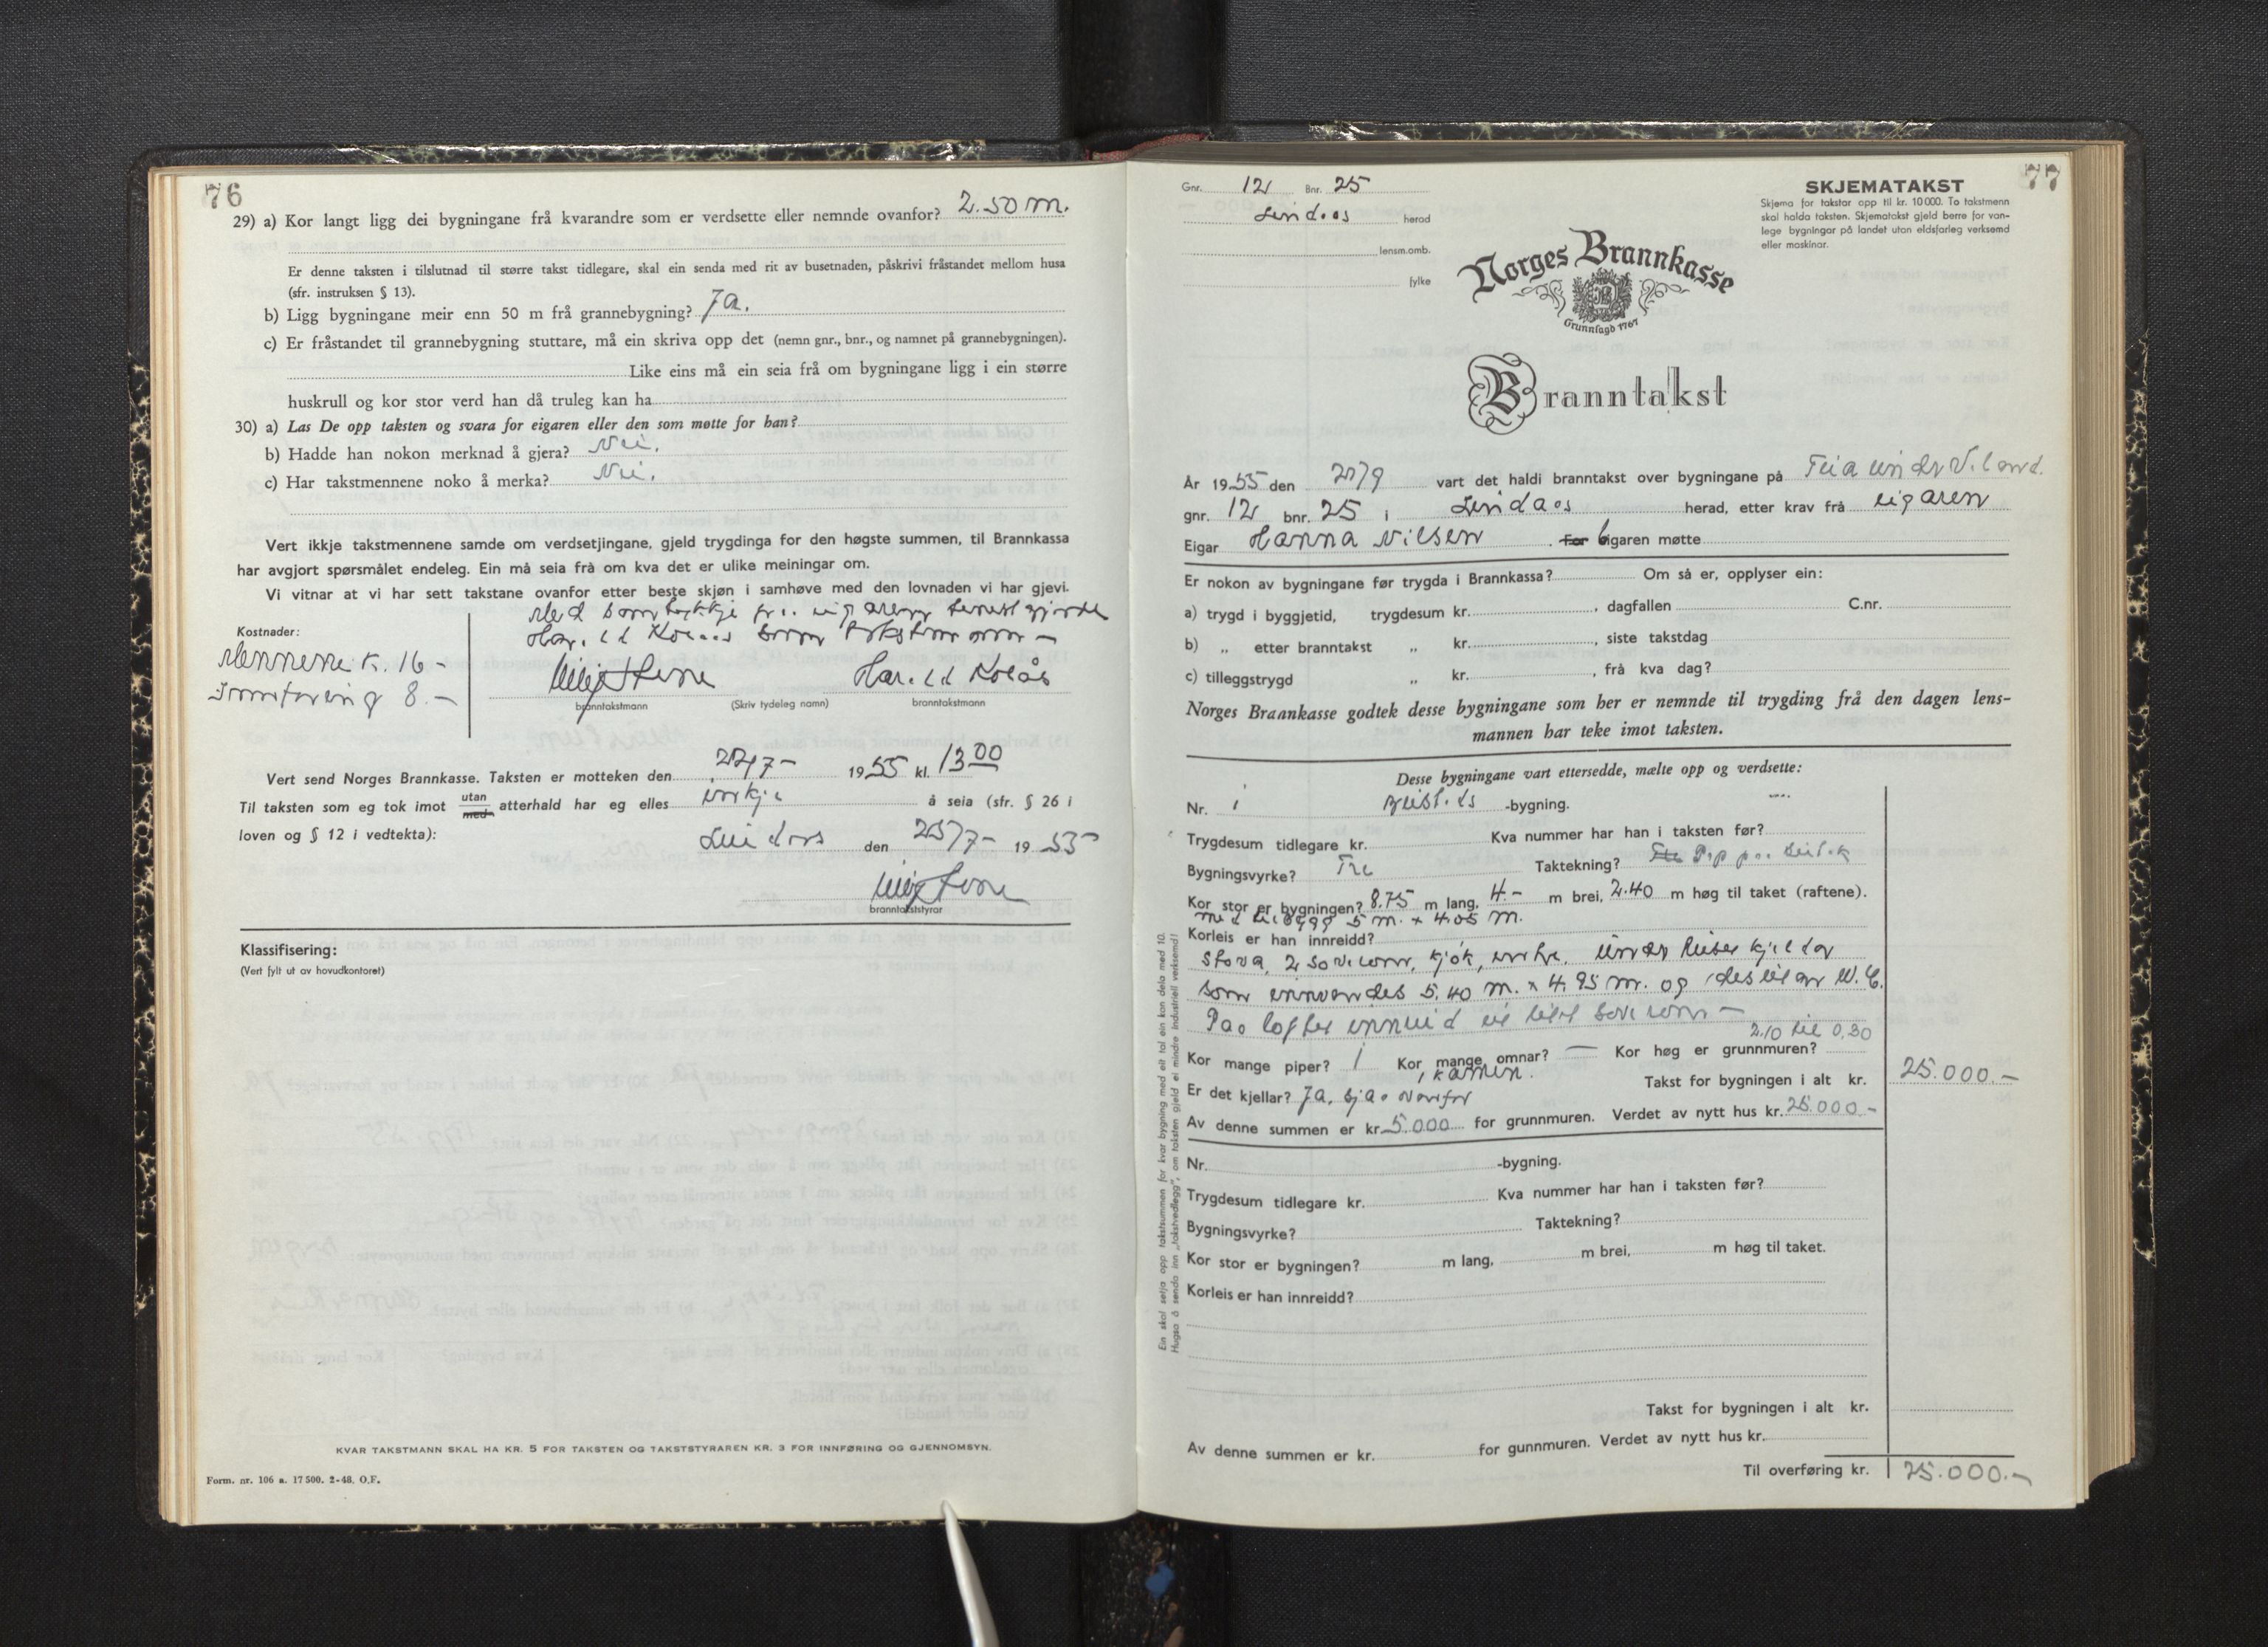 76
29) a) Kor langt ligg dei bygningane frå kvarandre som er verdsette eller nemnde ovanfor? 2.50 m.
Er denne taksten i tilslutnad til større takst tidlegare, skal ein senda med rit av busetnaden, påskrivi fråstandet mellom husa
(sfr. instruksen § 13).
b) Ligg bygningane meir enn 50 m frå grannebygning? Ja.
c) Er fråstandet til grannebygning stuttare, må ein skriva opp det (nemn gnr., bnr., og namnet på grannebygningen).
Like eins må ein seia frå om bygningane ligg i ein større
huskrull og kor stor verd han då truleg kan ha
30) a) Las De opp taksten og svara for eigaren eller den som møtte for han?
b) Hadde han nokon merknad å gjera? Nei.
c) Har takstmennene noko å merka? Nei.
Vert ikkje takstmennene samde om verdsetjingane, gjeld trygdinga for den høgste summen, til Brannkassa
har avgjort spørsmålet endeleg. Ein må seia frå om kva det er ulike meiningar om.
Vi vitnar at vi har sett takstane ovanfor etter beste skjøn i samhøve med den lovnaden vi har gjevi.
Med samtykkje fra eigaren tenestgjorde
Harald Kolaas som takstmann -
Kostnader:
Mennene k. 16 -
Innføring 8. -
Harald Kolås
branntakstmann (Skriv tydeleg namn) branntakstmann
Vert send Norges Brannkasse. Taksten er motteken den 1955 kl. 13 00
Til taksten som eg tok imot utan med atterhald har eg elles ikkje å seia (sfr. § 26 i
loven og § 12 i vedtekta):
Lindaas den 25/7 - 1955
branntakststyrar
Klassifisering:
(Vert fylt ut av hovudkontoret)
KVAR TAKSTMANN SKAL HA KR. 5 FOR TAKSTEN OG TAKSTSTYRAREN KR. 3 FOR INNFØRING OG GJENNOMSYN.
Form. nr. 106 a. 17 500. 2-48. O.F.
77
Gnr. 12 Bnr. 25
Lindaas herad
lensm.omb.
fylke
SKJEMATAKST
Skjema for takstar opp til kr. 10 000. To takstmenn
skal halda taksten. Skjematakst gjeld berre for van-
lege bygningar på landet utan eldsfarleg verksemd
eller maskinar.
Norges Brannkasse
Grunnlagd 1767
Branntakst
År 1955 den vart det haldi branntakst over bygningane på
gnr. 12 bnr. 25 i Lindaas herad, etter krav frå eigaren
Eigar Hanna Nilsen. For eigaren møtte
Er nokon av bygningane før trygda i Brannkassa? Om så er, opplyser ein:
a) trygd i byggjetid, trygdesum kr. , dagfallen C.nr.
b) „ etter branntakst „ kr. , siste takstdag
c) tilleggstrygd „ kr. , frå kva dag?
Norges Brannkasse godtek desse bygningane som her er nemnde til trygding frå den dagen lens-
mannen har teke imot taksten.
Desse bygningane vart ettersedde, mælte opp og verdsette:
Nr. 1 -bygning.
Trygdesum tidlegare kr. Kva nummer har han i taksten før?
Bygningsvyrke? Tre Taktekning?
Kor stor er bygningen? 8.75 m lang, 4.- m brei, 2.40 m høg til taket (raftene).
med tilbygg 5 m. x 4.05 m.
Korleis er han innreidd?
Stova, 2 soverom, kjøk, entre. Under huset kjellar
som innvendes 5.40 m. x 4.95 m. og desutan W.C.
Paa loftet innreid eit lite soverom -
2.10 til 0,30
Kor mange piper? 1 Kor mange omnar? — Kor høg er grunnmuren?
1 kamin.
Er det kjellar? Ja, sjaa ovanfor Takst for bygningen i alt kr. 25.000.-
Av denne summen er kr. 5.000 for grunnmuren. Verdet av nytt hus kr. 25.000.-
Nr. -bygning.
Trygdesum tidlegare kr. Kva nummer har han i taksten før?
Bygningsvyrke? Taktekning?
Kor stor er bygningen? m lang, m brei, m høg til taket.
Korleis er han innreidd?
Takst for bygningen i alt kr.
Av denne summen er kr. for gunnmuren. Verdet av nytt hus kr.
Til overføring kr. 25.000.-
Ein skal setja opp takstsummen for kvar bygning med eit tal ein kan dela med 10.
Hugsa å senda inn „takstvedlegg”, om taksten gjeld ei mindre industriell verksemd!